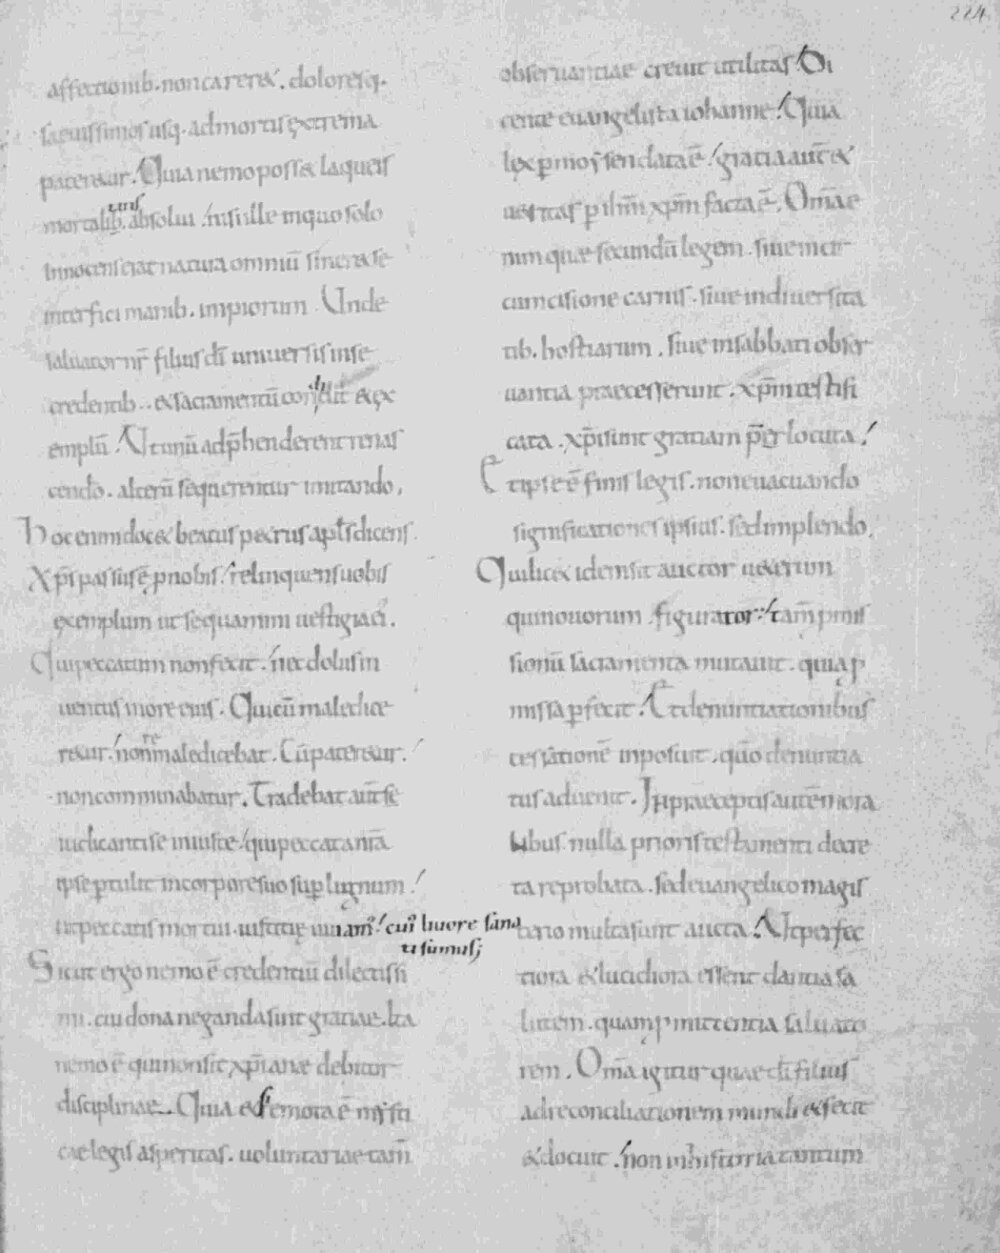 224
affectionib. non careret. doloresq.
saeuissimos usq. ad mortis extrema
pateretur. Quia nemo posset laqueis
mortalib. absolui. nisi ille in quo solo
innocens erat natura omniū sincera se
interfici manib. impiorum. Unde
saluator nr̄ filius dī uniuersis in se
credentib. et sacramentū condidit et ex
emplū. Ut unū adp̄henderent renas
cendo. alterū sequerentur imitando.
Hoc enim docet beatus petrus apl̄s dicens.
Xp̄s passus ē pro nobis. relinquens uobis
exemplum ut sequamini uestigia ei.
Qui peccatum non fecit. nec dolus in
uentus in ore eius. Qui cū maledice
retur. non remaledicebat. Cū pateretur.
non comminabatur. Tradebat aūt se
iudicanti se iniuste. qui peccata nr̄a
ipse ptulit in corpore suo sup lignum.
ut peccatis mortui. iustitię uiuam'. cui' liuore sana
ti sumus;
Sicut ergo nemo ē credentiū dilectissi
mi. cui dona neganda sint gratiae. ita
nemo ē qui non sit xp̄ianae debitor
disciplinae. Quia etsi remota ē mysti
cae legis asperitas. uoluntariae tam̄
obseruantiae creuit utilitas. Di
cente euangelista iohanne. Quia
lex p moysen data ē. gratia aūt et
ueritas p ihm̄ xpm̄ facta ē. Om̄ae
nim quae secundū legem. siue in cir
cumcisione carnis. siue in diuersita
tib. hostiarum. siue in sabbati obser
uantia praecesserunt. xpm̄ testifi
cata. xp̄i sunt gratiam p̄locuta.
Et ipse ē finis legis. non euacuando
significationes ipsius. sed implendo.
Qui licet idem sit auctor ueterum
qui nouorum. figurator. tam̄ pmis
sionū sacramenta mutauit. quia p
missa pfecit. Et denuntiationibus
cessationē inposuit. quō denuntia
tus aduenit. In praeceptis autē mora
libus nulla prioris testamenti decre
ta reprobata. sed euangelico magis
terio multa sunt aucta. Ut perfec
tiora et lucidiora essent dantia sa
lutem. quam pmittentia saluato
rem. Om̄a igitur quae dī filius
ad reconciliationem mundi et fecit
et docuit. non in historia tantum